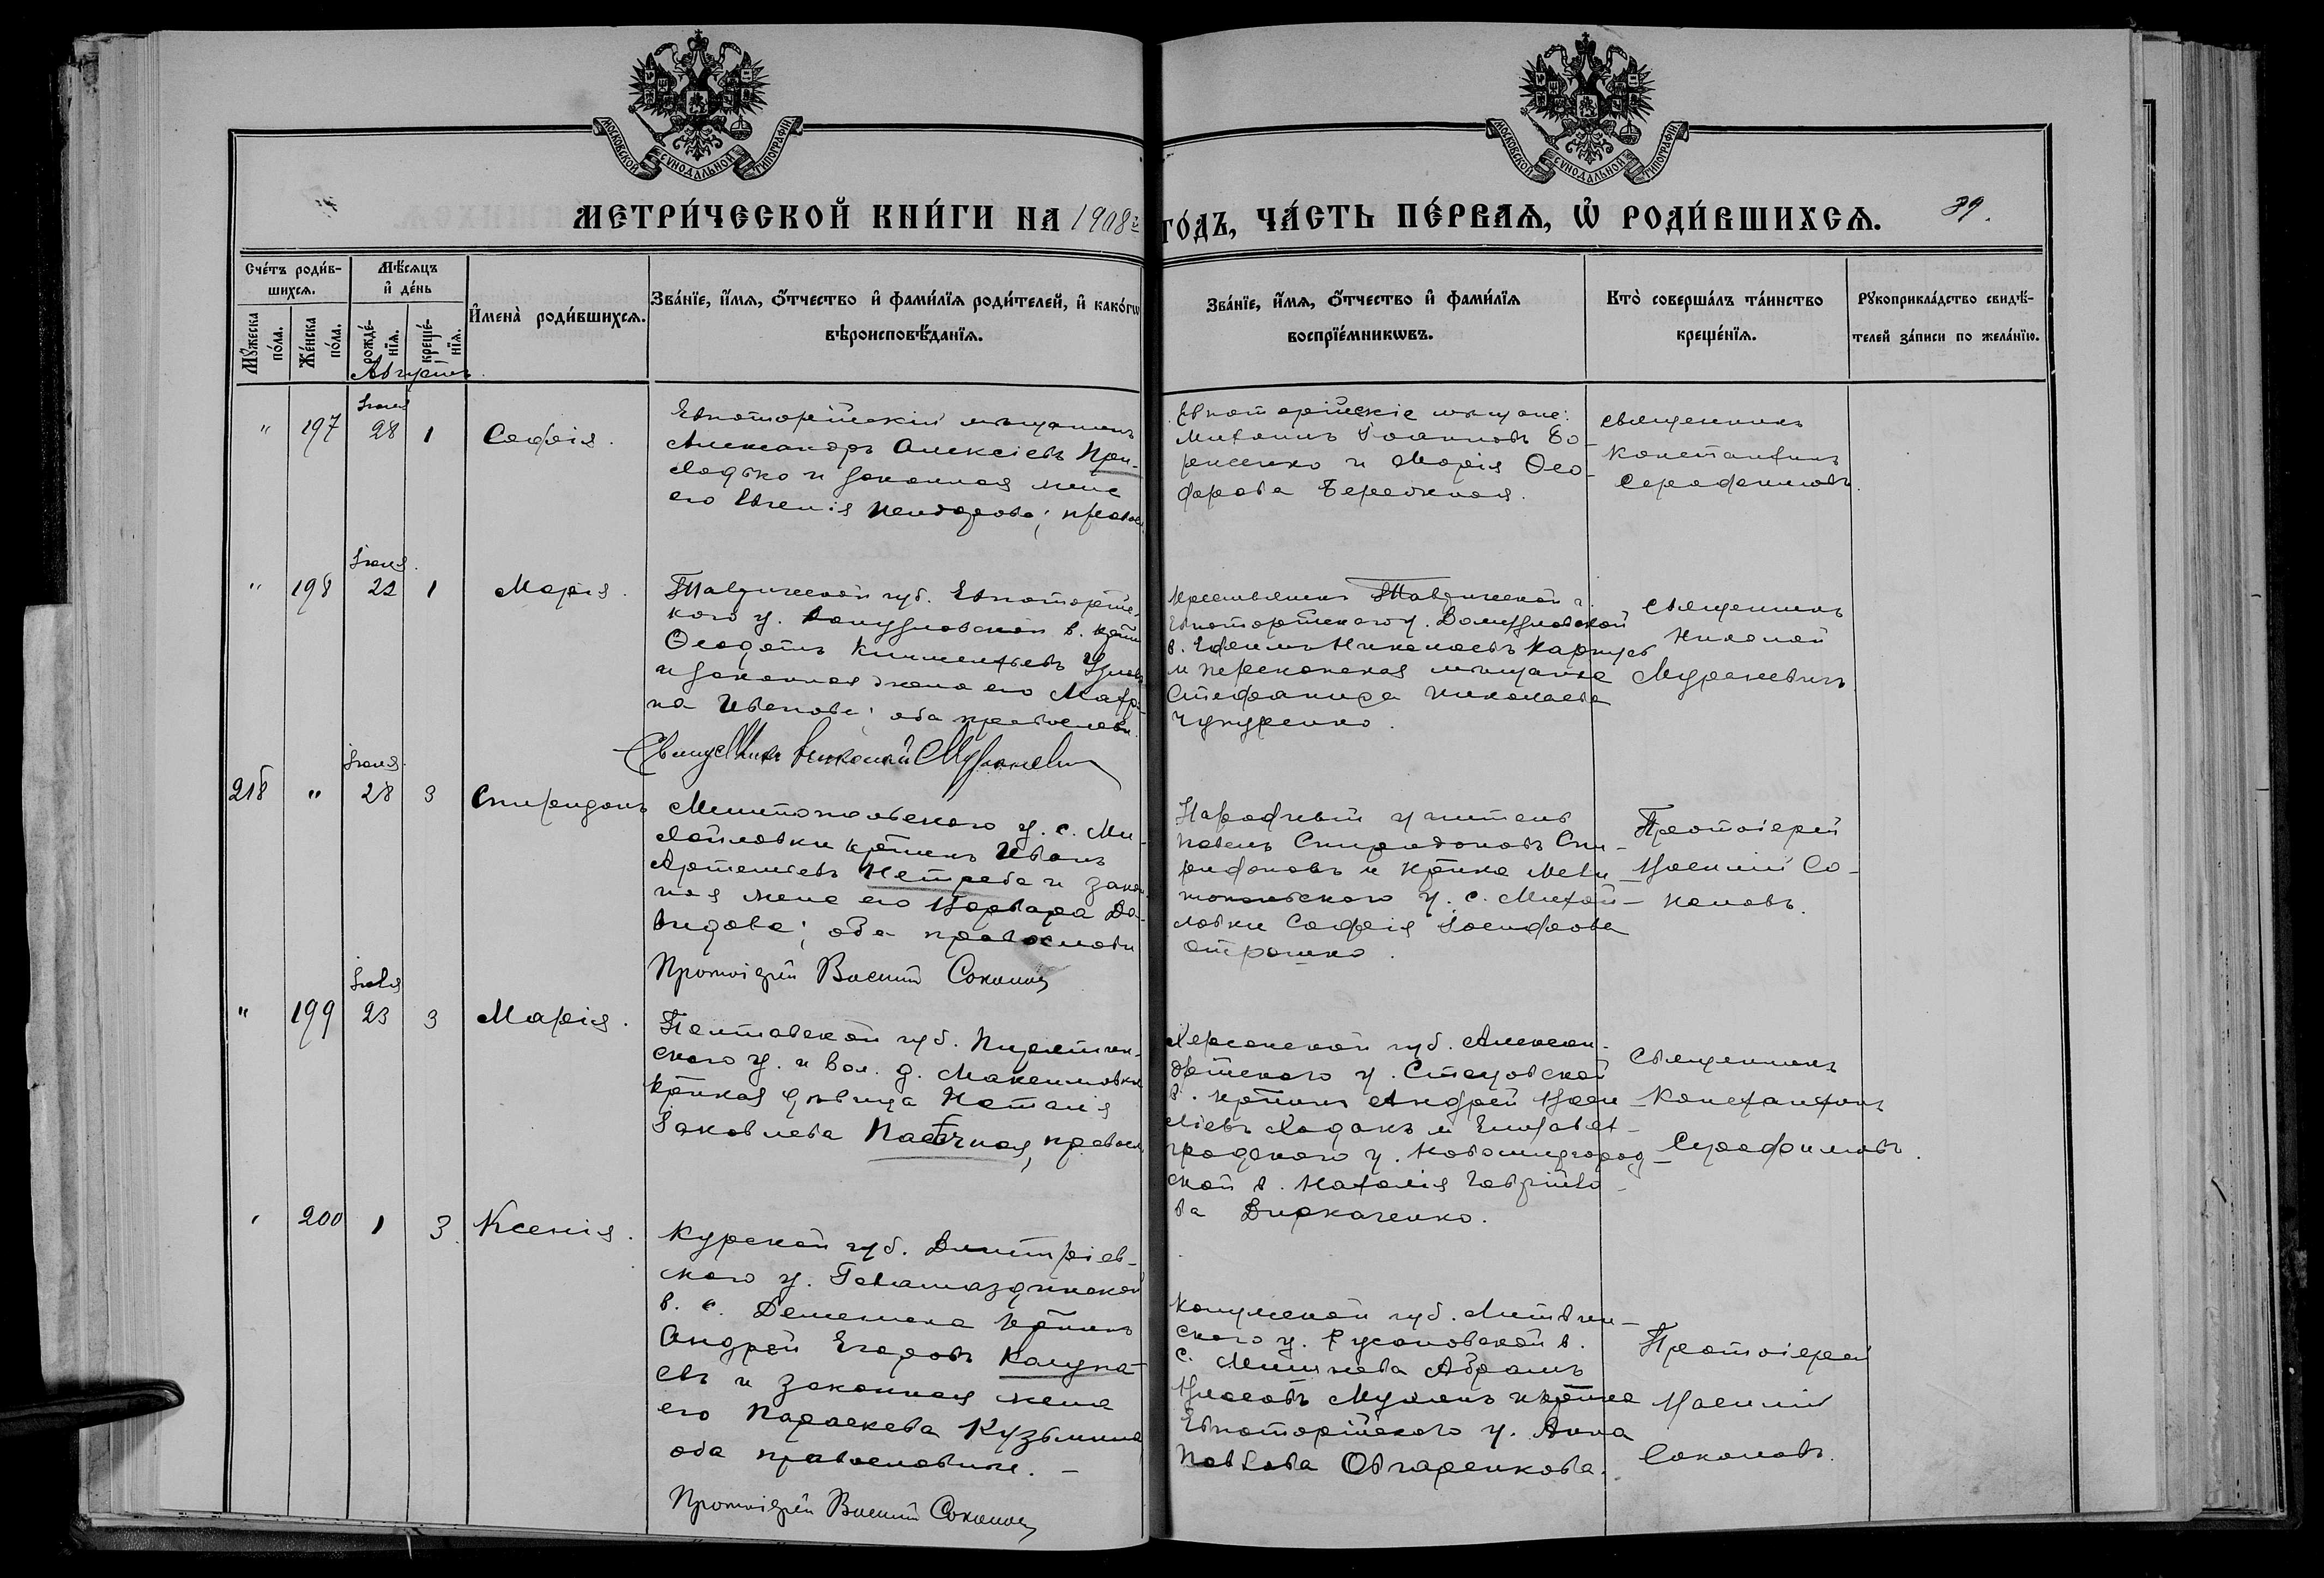 МОСКОВСКОЙ СѴНОДАЛЬНОЙ ТИПОГРАФІИ
МОСКОВСКОЙ СѴНОДАЛЬНОЙ ТИПОГРАФІИ
МЕТРИ́ЧЕСКОЙ КНИ́ГИ НА 1908й
ГО́ДЪ, ЧА́СТЬ ПЕ́РВАѦ, Ѡ҆ РОДИ́ВШИХСѦ.
39.
Сче́тъ роди́в-
шихсѧ.
Мꙋ́жеска по́ла.
Же́нска по́ла.
Мѣ́сѧцъ
и҆ де́нь
рожде́-
нїѧ.
креще́-
нїѧ.
Августъ
И҆мена̀ роди́вшихсѧ.
Зва́нїе, и҆́мѧ, ѻ҆́тчество и҆ фами́лїѧ роди́телей, и҆ како́гѡ
вѣроисповѣ́данїѧ.
Зва́нїе, и҆́мѧ, ѻ҆́тчество и҆ фами́лїѧ
воспрїе́мникѡвъ.
Кто̀ соверша́лъ та́инство
креще́нїѧ.
Рꙋкоприкла́дство свидѣ́-
телей за́писи по жела́нїю.
Іюля
" 197 28 1 Софія.
Евпаторійскій мѣщанинъ
Александръ Алексіевъ При-
ходько и законная жена
его Евгенія
Евпаторійскіе мѣщане:
Михаилъ Іоанновъ Бо-
рисенко и Марія Ѳео-
дорова Бережная.
священникъ
Константинъ
Серафимовъ.
Іюля.
" 198 22 1 Марія.
Таврической губ. Евпаторійс-
кого у. в.
Ѳеодотъ Климентьевъ
и законная жена его Матро-
на Иванова; оба православн.
Священникъ Николай Мураневичъ
Таврической г.
Евпаторійского у.
в. Ефимъ Николаевъ Карпусъ
и перекопская мѣщанка
Стефанида Николаева
Чупуренко.
священникъ
Николай
Мураневичъ
Іюля.
218 " 28 3 Спиридонъ
Мелитопольского у. с. Ми-
хайловки кр-нинъ Иванъ
Артемьевъ Нетреба и закон-
ная жена его Варвара Да-
видова; оба православн
Протоіерей Василій Соколовъ
Народный учитель
Павелъ Спиридоновъ Спи-
ридоновъ и кр-нка Мели-
топольского у. с. Михай-
ловки Софія Іосифова
Отрошко.
Протоіерей
Василій Со-
коловъ.
Іюля
" 199 23 3 Марія.
Полтавской губ. Пирятин-
ского у. и вол. д. Максимовки
кр-нская дѣвица Наталія
Іаковлева Пасѣчная, правосл
Херсонской губ. Алексан-
дрійского у. Стецовской
в. кр-нинъ Андрей Васи-
ліевъ Ходакъ и Елисавет-
градского у. Новомиргород-
ской в. Наталія Гавріило-
ва Диркаченко.
Священникъ
Константинъ
Серафимовъ.
" 200 1 3. Ксенія.
Курской губ. Дмитріев-
ского у.
в. с. кр-нинъ
Андрей Егоровъ Калуга-
евъ и законная жена
его Параскева Кузьмина
оба православные. –
Протоіерей Василій Соколовъ
Калужской губ.
ского у. Русановской в.
с. Абрамъ
Власовъ и кр-нка
Евпаторійского у. Анна
Павлова Овчаренкова.
Протоіерей
Василій
Соколовъ.